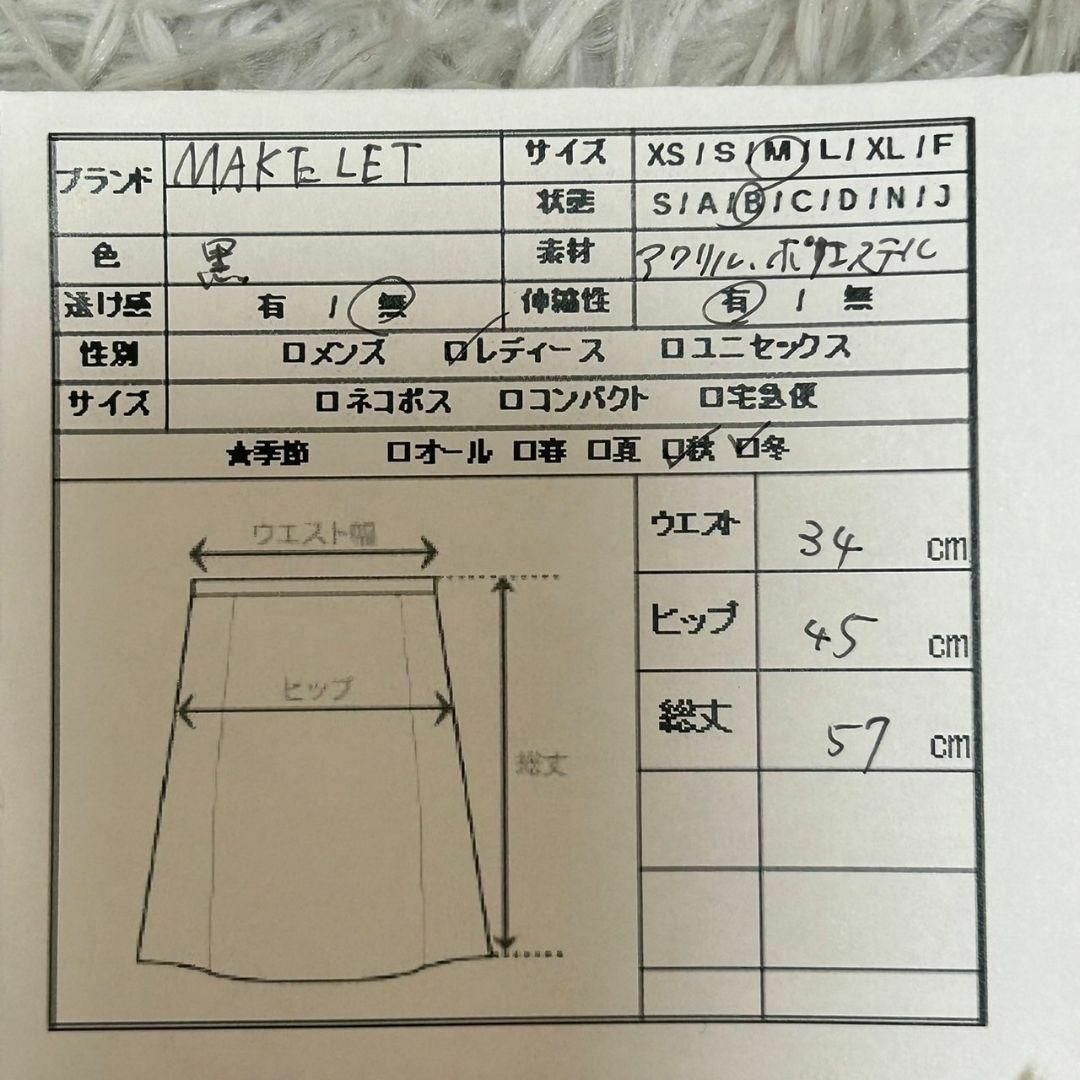 ブランド MAKE LET サイズ XS / S / M / L / XL / F
状態 S / A / B / C / D / N / J
色 黒 素材 アクリル、ポリエステル
透け感 有 / 無 伸縮性 有 / 無
性別 □メンズ □レディース □ユニセックス
サイズ □ネコポス □コンパクト □宅急便
★季節 □オール □春 □夏 □秋 □冬
ウエスト幅
ヒップ
総丈
ウエスト 34 cm
ヒップ 45 cm
総丈 57 cm